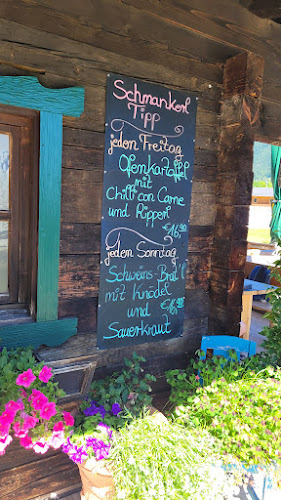 Schmankerl
Tipp
jeden Freitag
Ofenkartoffel
mit
Chilli con Carne
und Ripperl
€16,90
jeden Sonntag
Schweins Brat'l
mit Knödel
und €16,90
Sauerkraut